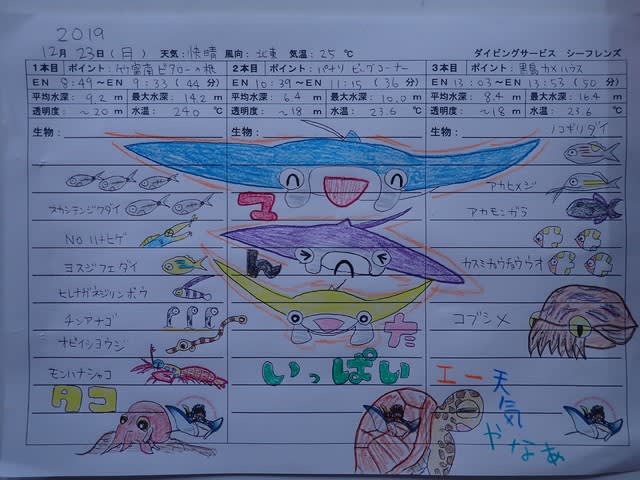 2019
12月 23日(月) 天気:快晴 風向:北東 気温:25 ℃ ダイビングサービス シーフレンズ
1本目 ポイント:竹富南ピタローの根
EN 8:49~EN 9:33(44分)
平均水深: 9.2 m 最大水深: 14.2 m
透明度: ~20 m 水温: 24.0 ℃
生物:
スカシテンジクダイ
No 11ナヒゲ
ヨスジフエダイ
ヒレナガネジリンボウ
チンアナゴ
オビイシヨウジ
モンハナシャコ
タコ
2本目 ポイント:パナリ ビッグコーナー
EN 10:39~EN 11:15(36分)
平均水深: 6.4 m 最大水深: 10.0 m
透明度: ~18 m 水温: 23.6 ℃
生物:
マ
ん
た
いっぱい
3本目 ポイント:黒島カメハウス
EN 13:03~EN 13:53(50分)
平均水深: 8.4 m 最大水深: 16.4 m
透明度: ~18 m 水温: 23.6 ℃
生物:
ノコギリダイ
アカヒメジ
アカモンガラ
カスミチョウチョウウオ
コブシメ
エー天気やなぁ